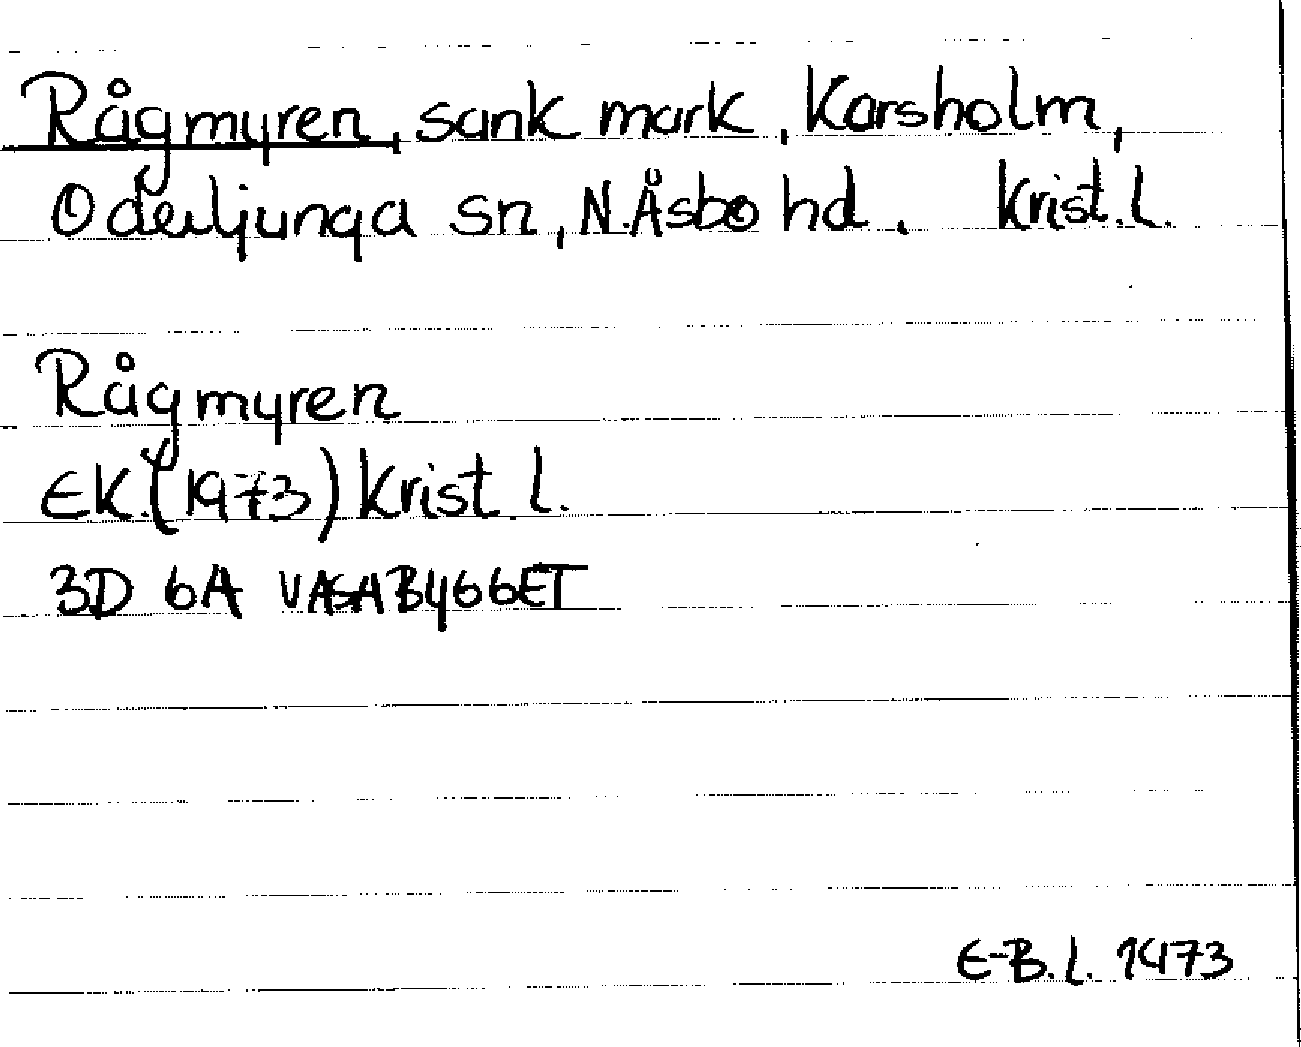 Rågmyren, sank mark, Karsholm,
Oderljunga sn, N.Åsbo hd. Krist.l.
Rågmyren
EK.(1973) Krist.l.
3D 6A VASABYGGET
E-B.L. 1973